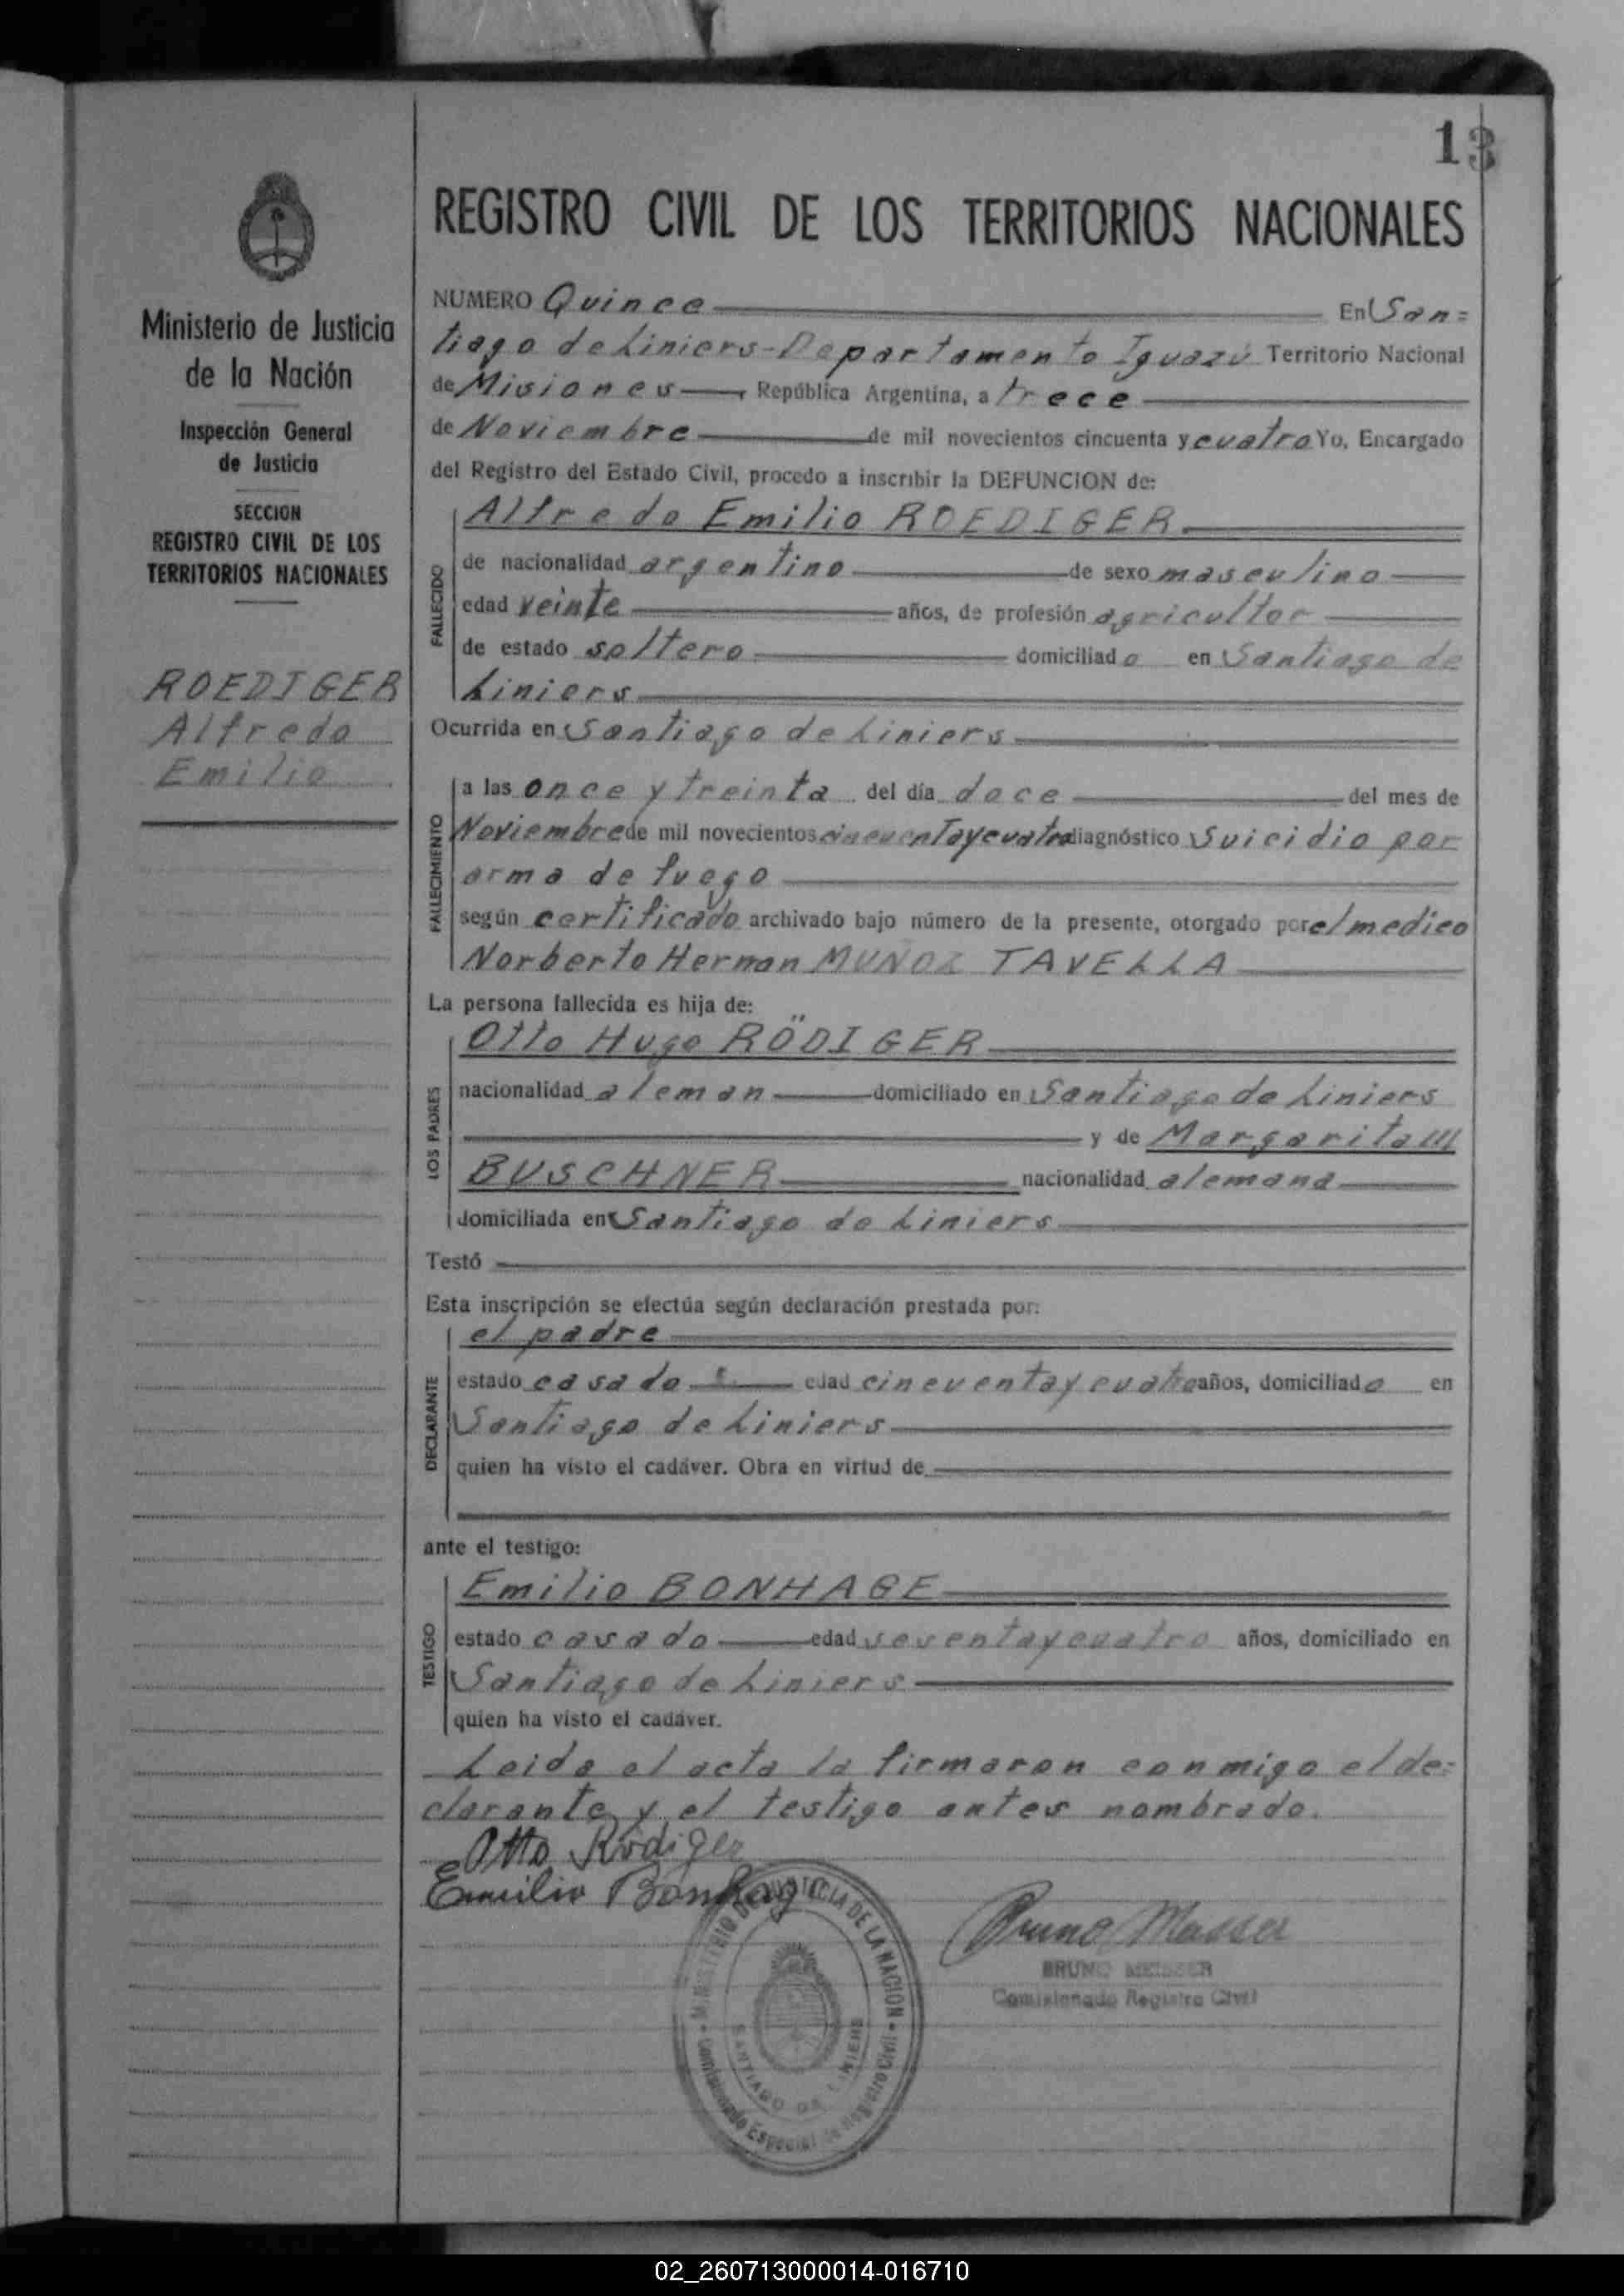 13
REGISTRO CIVIL DE LOS TERRITORIOS NACIONALES
Ministerio de Justicia
de la Nación
Inspección General
de Justicia
SECCION
REGISTRO CIVIL DE LOS
TERRITORIOS NACIONALES
ROEDIGER
Alfredo
Emilio
NUMERO Quince En San=
tiago de Liniers-Departamento Iguazú Territorio Nacional
de Misiones, República Argentina, a trece
de Noviembre de mil novecientos cincuenta y cuatro Yo, Encargado
del Registro del Estado Civil, procedo a inscribir la DEFUNCION de:
FALLECIDO
Alfredo Emilio ROEDIGER
de nacionalidad argentino de sexo masculino
edad veinte años, de profesión agricultor
de estado soltero domiciliado en Santiago de
Liniers
Ocurrida en Santiago de Liniers
FALLECIMIENTO
a las once y treinta del día doce del mes de
Noviembre de mil novecientos cincuentaycuatro diagnóstico Suicidio por
arma de fuego
según certificado archivado bajo número de la presente, otorgado por el medico
Norberto Hernan MUÑOZ TAVELLA
La persona fallecida es hija de:
LOS PADRES
Otto Hugo RÖDIGER
nacionalidad aleman domiciliado en Santiago de Liniers
y de Margarita
BUSCHNER nacionalidad alemana
domiciliada en Santiago de Liniers
Testó
Esta inscripción se efectúa según declaración prestada por:
DECLARANTE
el padre
estado casado edad cincuentaycuatro años, domiciliado en
Santiago de Liniers
quien ha visto el cadáver. Obra en virtud de
ante el testigo:
TESTIGO
Emilio BONHAGE
estado casado edad sesentaycuatro años, domiciliado en
Santiago de Liniers
quien ha visto el cadáver.
Leida el acta la firmaron conmigo el de=
clarante y el testigo antes nombrado.
Otto Rödiger
Emilio Bonhage
MINISTERIO DE JUSTICIA DE LA NACION
Comisionado Especial de Registro Civil
SANTIAGO DE LINIERS
Bruno
BRUNO
Comisionado Registro Civil
02_260713000014-016710